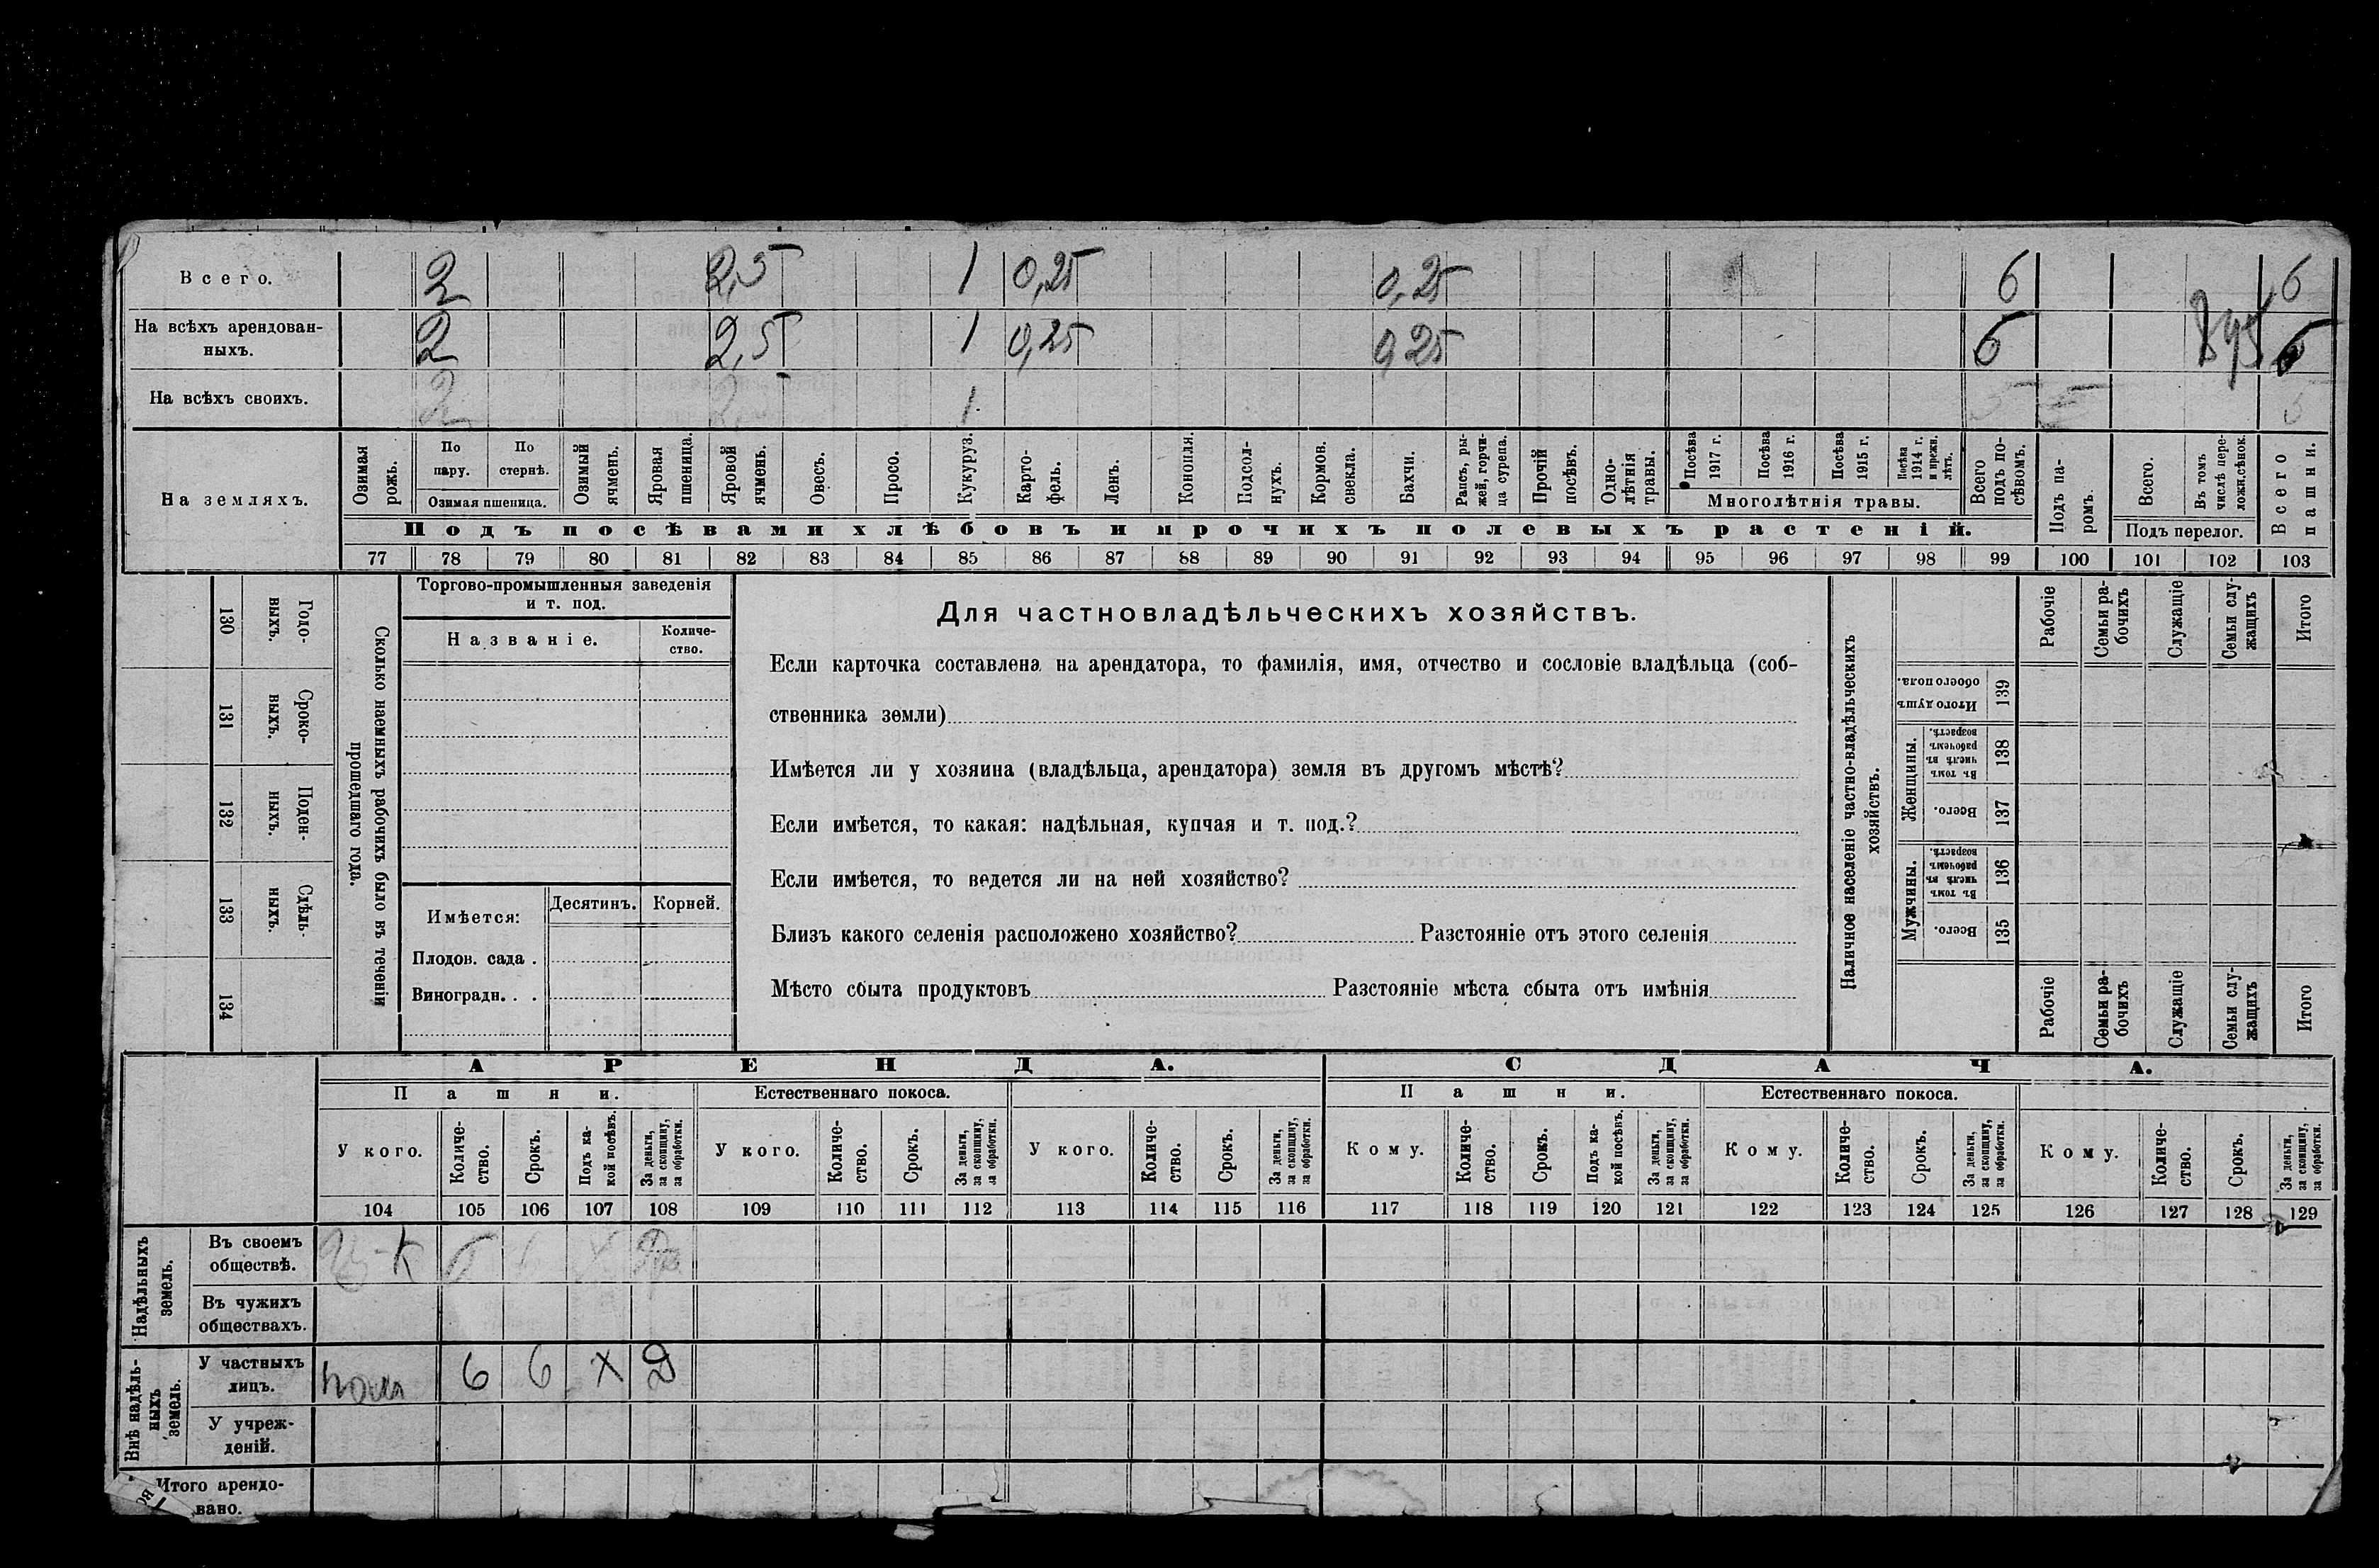 Всего. 2 2,5 1 0,25 0,25 6 6
На всѣхъ арендован-
ныхъ. 2 2,5 1 0,25 0,25 6 6
На всѣхъ своихъ. 2 2, 1
На земляхъ.
Озимая рожь.
По пару.
По стернѣ.
Озимая пшеница.
Озимый ячмень.
Яровая пшеница.
Яровой ячмень.
Овесъ.
Просо.
Кукуруз.
Карто-
фель.
Ленъ.
Конопля.
Подсол-
нухъ.
Кормов.
свекла.
Бахчи.
Рапсъ, ры-
жей, горчи-
ца сурепа.
Прочій
посѣвъ.
Одно-
лѣтнія
травы.
Посѣва
1917 г.
Посѣва
1916 г.
Посѣва
1915 г.
Посѣва
1914 г.
и прежн.
лѣтъ.
Многолѣтнія травы.
Всего
подъ по-
сѣвомъ.
Подъ па-
ромъ.
Всего.
Въ томъ
числѣ пере-
ложн.сѣнок.
Подъ перелог.
Всего
пашни.
Подъ посѣвами хлѣбовъ и прочихъ полевыхъ растеній.
77 78 79 80 81 82 83 84 85 86 87 88 89 90 91 92 93 94 95 96 97 98 99 100 101 102 103
Годо-
выхъ.
130
Сроко-
ныхъ.
131
Поден-
ныхъ.
132
Сдѣль-
ныхъ.
133
134
Сколько наемныхъ рабочихъ было въ теченіи
прошедшаго года.
Торгово-промышленныя заведенія
и т. под.
Названіе.
Количе-
ство.
Имѣется:
Десятинъ.
Корней.
Плодов. сада .
Виноградн. . .
Для частновладѣльческихъ хозяйствъ.
Если карточка составлена на арендатора, то фамилія, имя, отчество и сословіе владѣльца (соб-
ственника земли)
Имѣется ли у хозяина (владѣльца, арендатора) земля въ другомъ мѣстѣ?
Если имѣется, то какая: надѣльная, купчая и т. под.?
Если имѣется, то ведется ли на ней хозяйство?
Близъ какого селенія расположено хозяйство? Разстояніе отъ этого селенія
Мѣсто сбыта продуктовъ Разстояніе мѣста сбыта отъ имѣнія
Наличное населеніе частно-владѣльческихъ
хозяйствъ.
Рабочіе
Семьи ра-
бочихъ
Служащіе
Семьи слу-
жащихъ
Итого
Итого душъ
обоего пола.
139
Женщины.
Въ томъ
числѣ въ
рабочемъ
возрастѣ.
138
Всего.
137
Мужчины.
Въ томъ
числѣ въ
рабочемъ
возрастѣ.
136
Всего.
135
Рабочіе
Семьи ра-
бочихъ
Служащіе
Семьи слу-
жащихъ
Итого
АРЕНДА. СДАЧА.
Пашни. Естественнаго покоса. Пашни. Естественнаго покоса.
У кого.
Количе-
ство.
Срокъ.
Подъ ка-
кой посѣвъ.
За деньги,
за скопщину,
за обработки.
У кого.
Количе-
ство.
Срокъ.
За деньги,
за скопщину,
за обработки.
У кого.
Количе-
ство.
Срокъ.
За деньги,
за скопщину,
за обработки.
Кому.
Количе-
ство.
Срокъ.
Подъ ка-
кой посѣвъ.
За деньги,
за скопщину,
за обработки.
Кому.
Количе-
ство.
Срокъ.
За деньги,
за скопщину,
за обработки.
Кому.
Количе-
ство.
Срокъ.
За деньги,
за скопщину,
за обработки.
104 105 106 107 108 109 110 111 112 113 114 115 116 117 118 119 120 121 122 123 124 125 126 127 128 129
Надѣльныхъ
земель.
Въ своемъ
обществѣ.
Въ чужихъ
обществахъ.
Внѣ надѣль-
ныхъ
земель.
У частныхъ
лицъ. 6 6 X Д
У учреж-
деній.
Итого арендо-
вано.